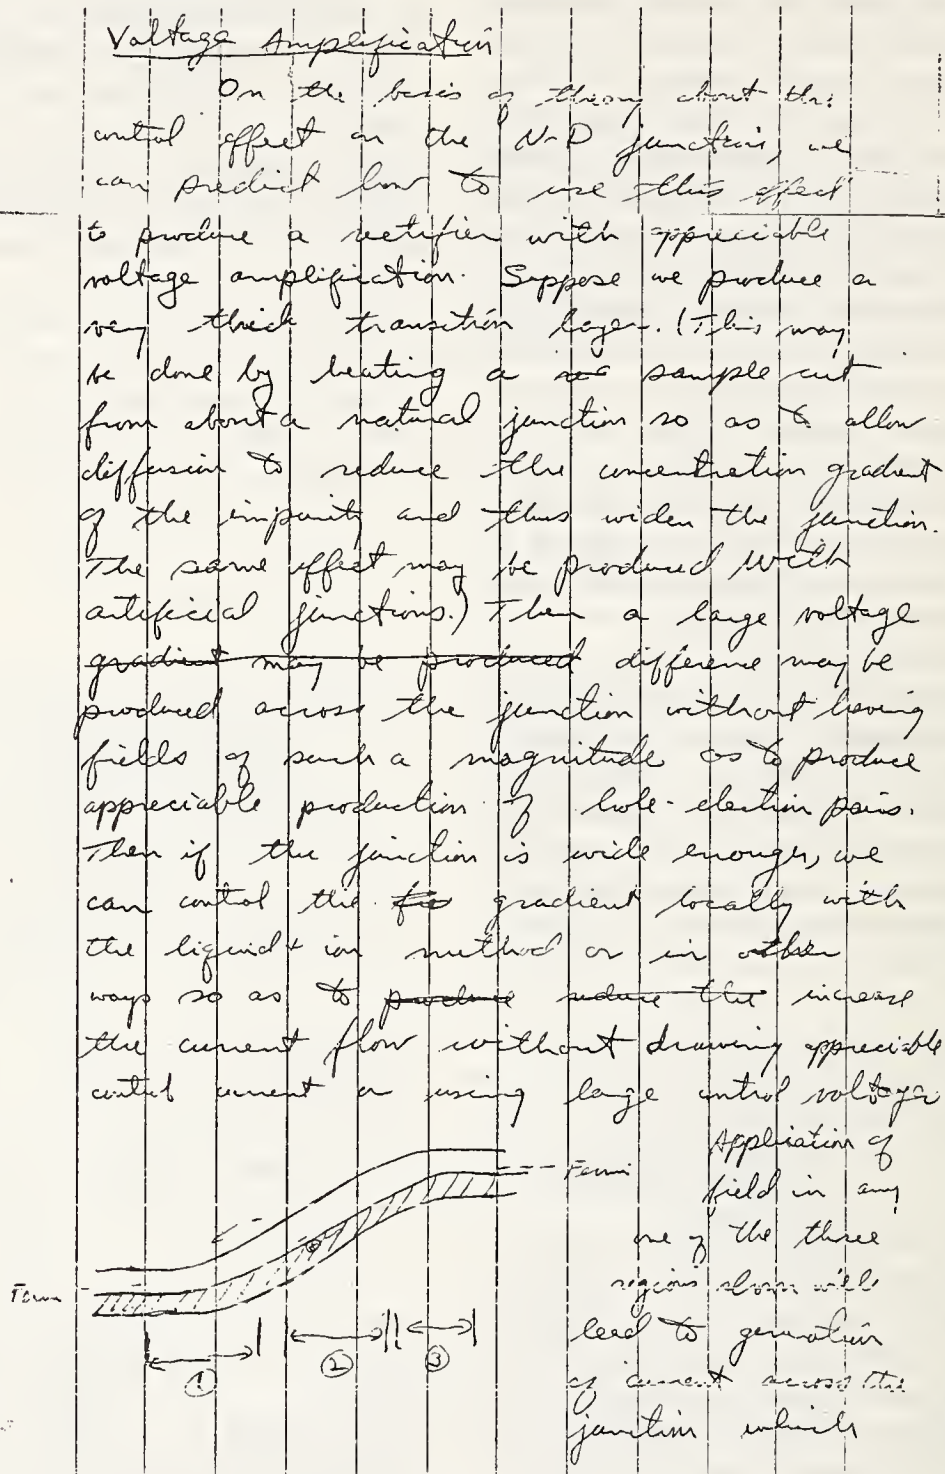 Voltage Amplification
On the basis of theory about the
control effect on the N-P junction, we
can predict how to use this effect
to produce a rectifier with appreciable
voltage amplification. Suppose we produce a
very thick transition layer. (This may
be done by heating a sample cut
from about a natural junction so as to allow
diffusion to reduce the concentration gradient
of the impurity and thus widen the junction.
The same effect may be produced with
artificial junctions.) Then a large voltage
gradient may be produced difference may be
produced across the junction without having
fields of such a magnitude as to produce
appreciable production of hole-electron pairs.
Then if the junction is wide enough, we
can control the gradient locally with
the liquid + ion method or in other
ways so as to produce reduce the increase
the current flow without drawing appreciable
control current or using large control voltages
Application of
Fermi
field in any
one of the three
regions shown will
Fermi
lead to generation
① ② ③
of current across the
junction which